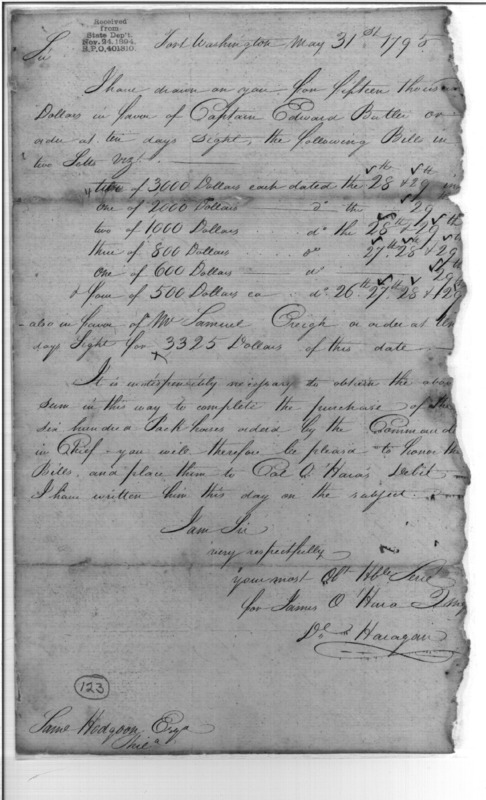 Received
from
State Dep't.
Nov. 24, 1894,
R.P.O, 401810.
Fort Washington May 31st 1795
Sir
I have drawn on you for fifteen thousan
Dollars in favor of Captain Edward Butler or
order at ten days sight, the following Bills in
two Setts vizt
two of 3000 Dollars each dated the 28 & 29th in
one of 2000 Dollars do the 29
two of 1000 Dollars do the 28th & 29th
three of 800 Dollars do 27th 28th & 29
one of 600 Dollars do 29
& four of 500 Dollars ea do 26th 27th 28 & 29
also in favor of Mr Samuel Creigh or order at ten
days Sight for 3325 Dollars of this date
It is indispensibly necessary to obtain the abov
sum in this way to complete the purchase of the
six hundred Pack horses orderd by the Command
in Chief - you will therefore be pleased to honor the
Bills, and place them to Col O Hara's Debit
I have written him this day on the subject.
I am Sir
very respectfully
your most Obt Hble Serv
for James O Hara
Haragan
123
Saml Hodgdon Esqr
Phila